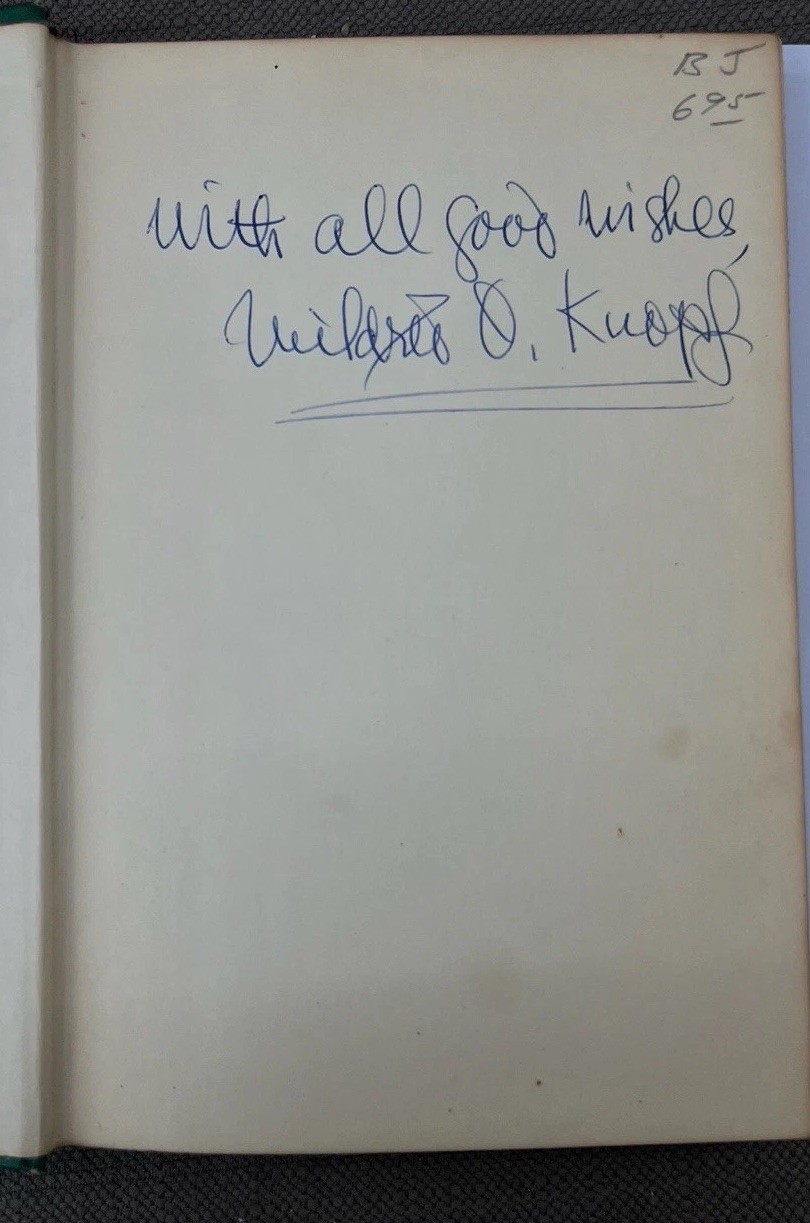 BJ
695
with all good wishes,
Mildred O. Knopf